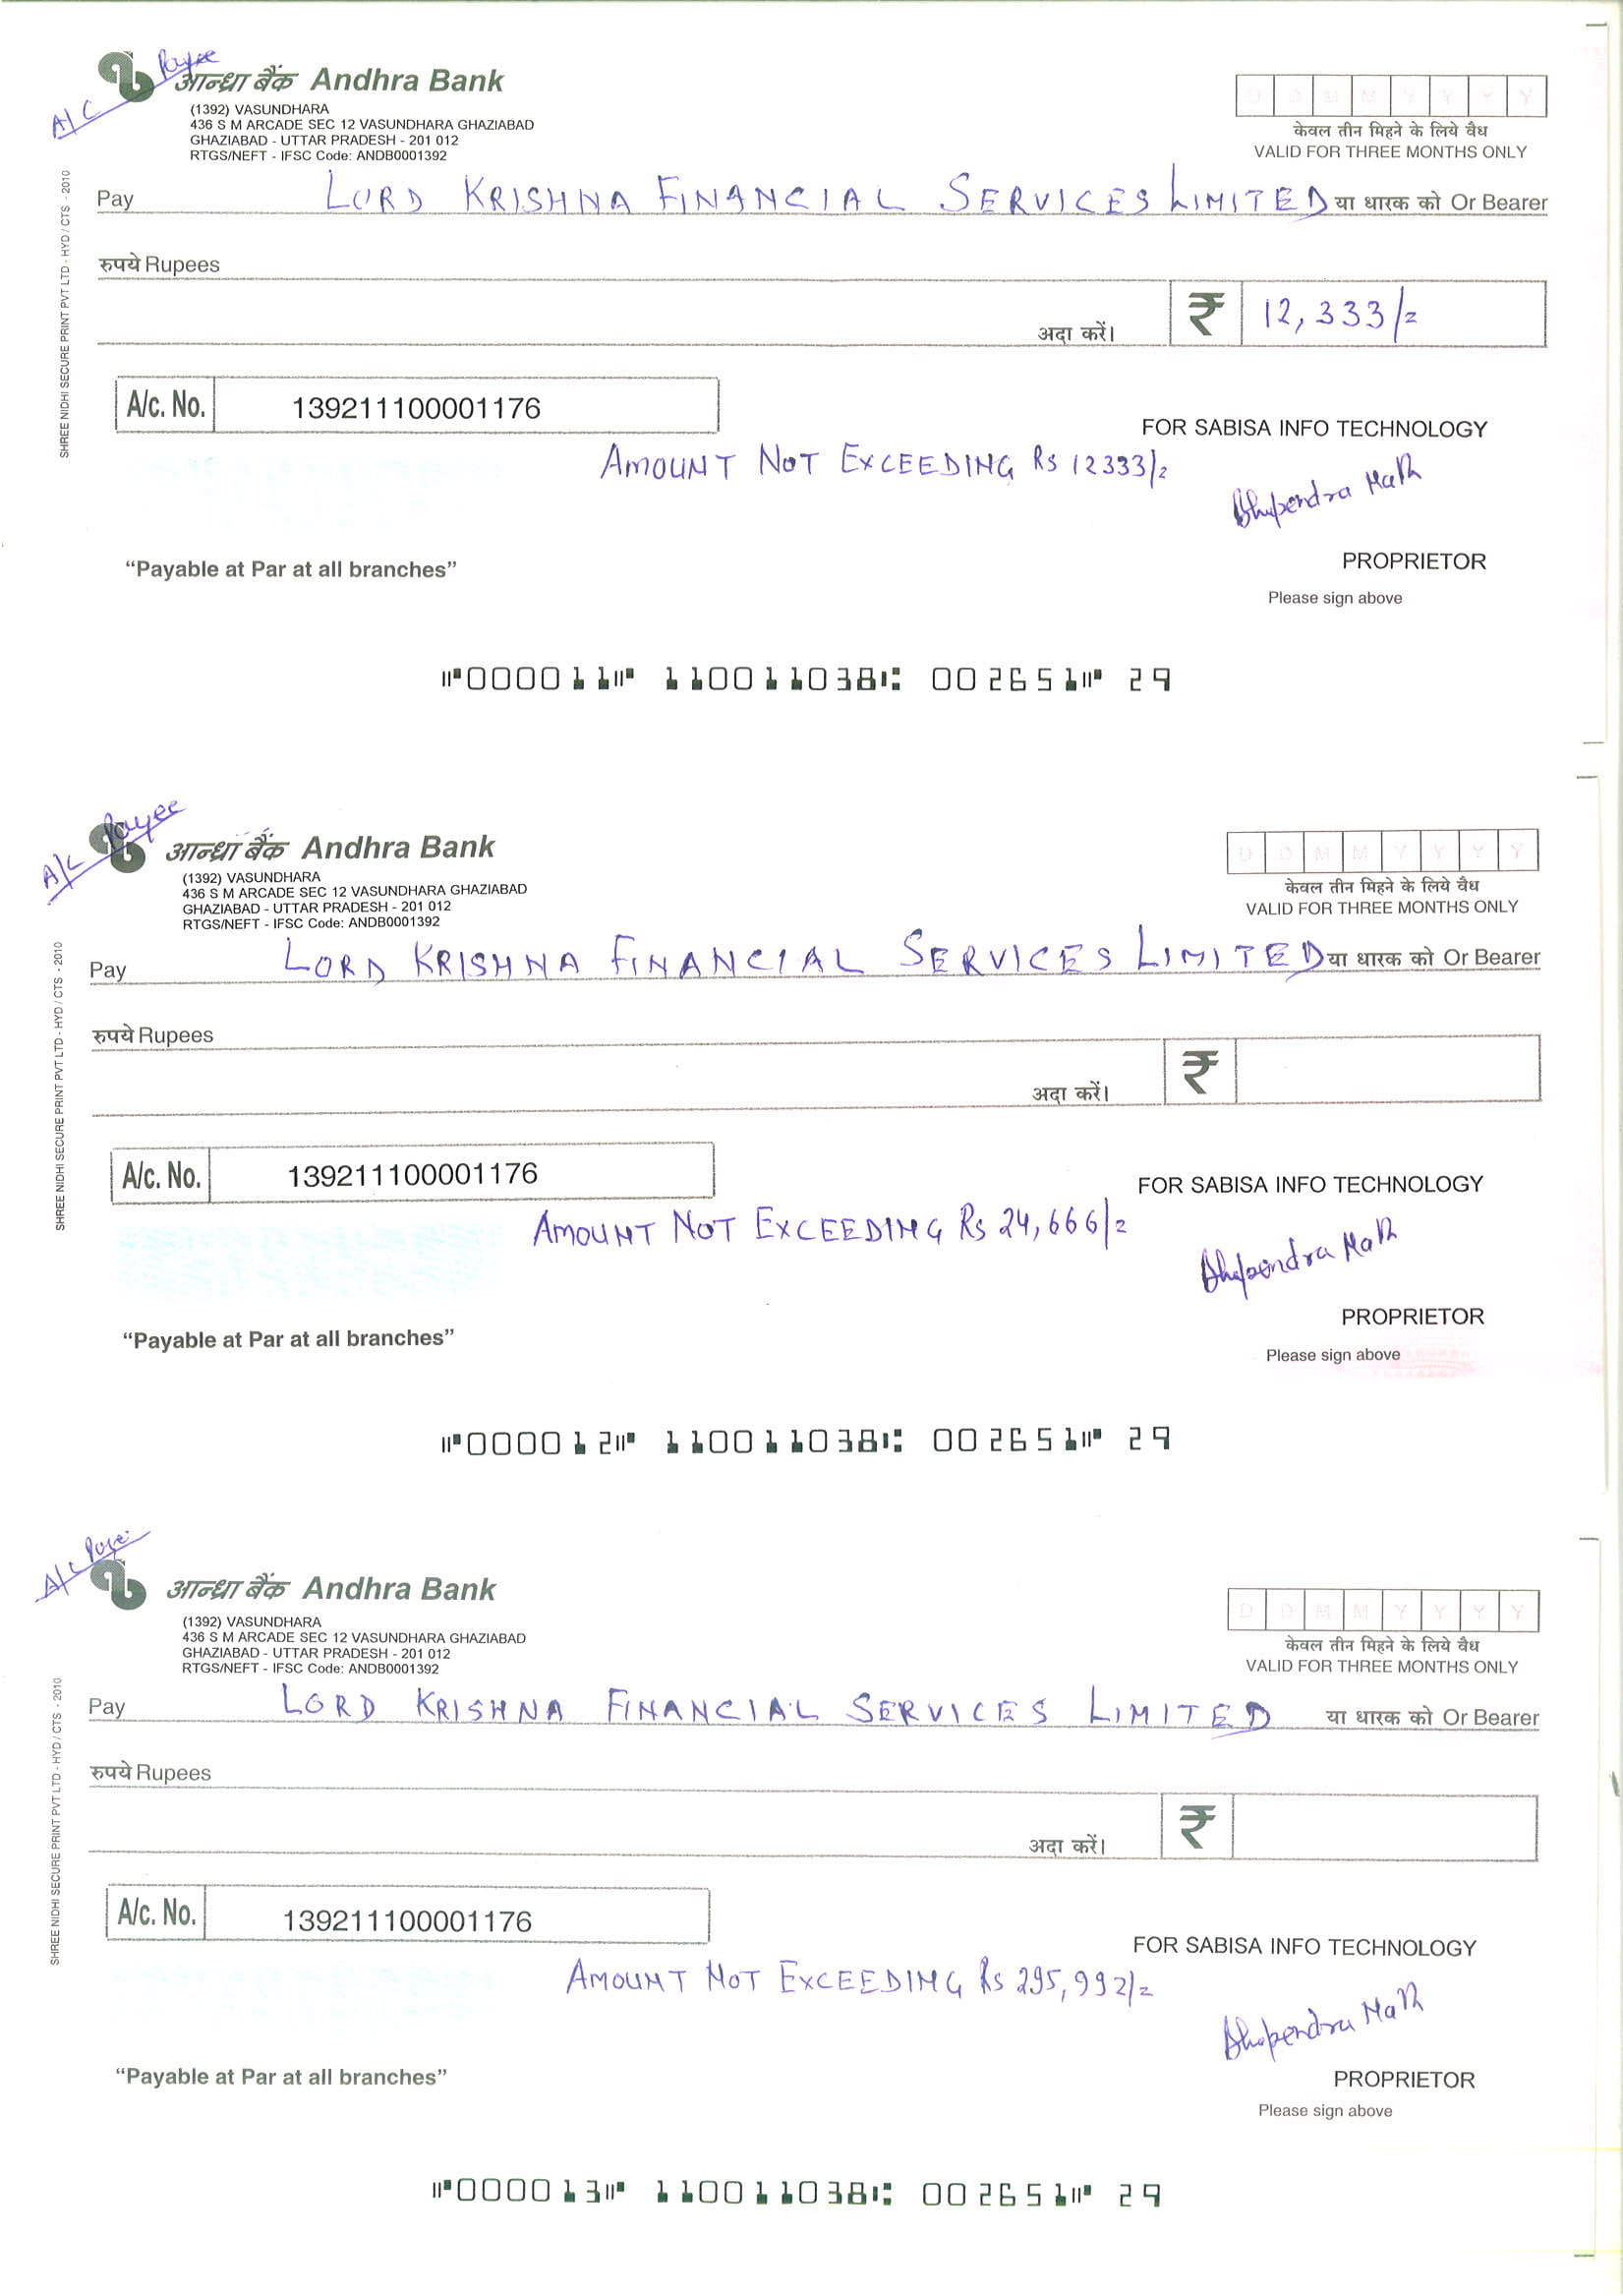 A/C Payee
आन्ध्रा बैंक Andhra Bank
(1392) VASUNDHARA
436 S M ARCADE SEC 12 VASUNDHARA GHAZIABAD
GHAZIABAD - UTTAR PRADESH - 201 012
RTGS/NEFT - IFSC Code: ANDB0001392
D D M M Y Y Y Y
केवल तीन मिहने के लिये वैध
VALID FOR THREE MONTHS ONLY
SHREE NIDHI SECURE PRINT PVT LTD - HYD / CTS - 2010
Pay LORD KRISHNA FINANCIAL SERVICES LIMITED या धारक को Or Bearer
रुपये Rupees
अदा करें। ₹ 12,333/=
A/c. No. 139211100001176
FOR SABISA INFO TECHNOLOGY
AMOUNT NOT EXCEEDING Rs 12333/=
Bhupendra Nath
"Payable at Par at all branches"
PROPRIETOR
Please sign above
⑈000011⑈ 110011038⑆ 002651⑈ 29
A/C Payee
आन्ध्रा बैंक Andhra Bank
(1392) VASUNDHARA
436 S M ARCADE SEC 12 VASUNDHARA GHAZIABAD
GHAZIABAD - UTTAR PRADESH - 201 012
RTGS/NEFT - IFSC Code: ANDB0001392
D D M M Y Y Y Y
केवल तीन मिहने के लिये वैध
VALID FOR THREE MONTHS ONLY
SHREE NIDHI SECURE PRINT PVT LTD - HYD / CTS - 2010
Pay LORD KRISHNA FINANCIAL SERVICES LIMITED या धारक को Or Bearer
रुपये Rupees
अदा करें। ₹
A/c. No. 139211100001176
FOR SABISA INFO TECHNOLOGY
AMOUNT NOT EXCEEDING Rs 24,666/=
Bhupendra Nath
"Payable at Par at all branches"
PROPRIETOR
Please sign above
⑈000012⑈ 110011038⑆ 002651⑈ 29
A/C Payee
आन्ध्रा बैंक Andhra Bank
(1392) VASUNDHARA
436 S M ARCADE SEC 12 VASUNDHARA GHAZIABAD
GHAZIABAD - UTTAR PRADESH - 201 012
RTGS/NEFT - IFSC Code: ANDB0001392
D D M M Y Y Y Y
केवल तीन मिहने के लिये वैध
VALID FOR THREE MONTHS ONLY
SHREE NIDHI SECURE PRINT PVT LTD - HYD / CTS - 2010
Pay LORD KRISHNA FINANCIAL SERVICES LIMITED या धारक को Or Bearer
रुपये Rupees
अदा करें। ₹
A/c. No. 139211100001176
FOR SABISA INFO TECHNOLOGY
AMOUNT NOT EXCEEDING Rs 295,992/=
Bhupendra Nath
"Payable at Par at all branches"
PROPRIETOR
Please sign above
⑈000013⑈ 110011038⑆ 002651⑈ 29